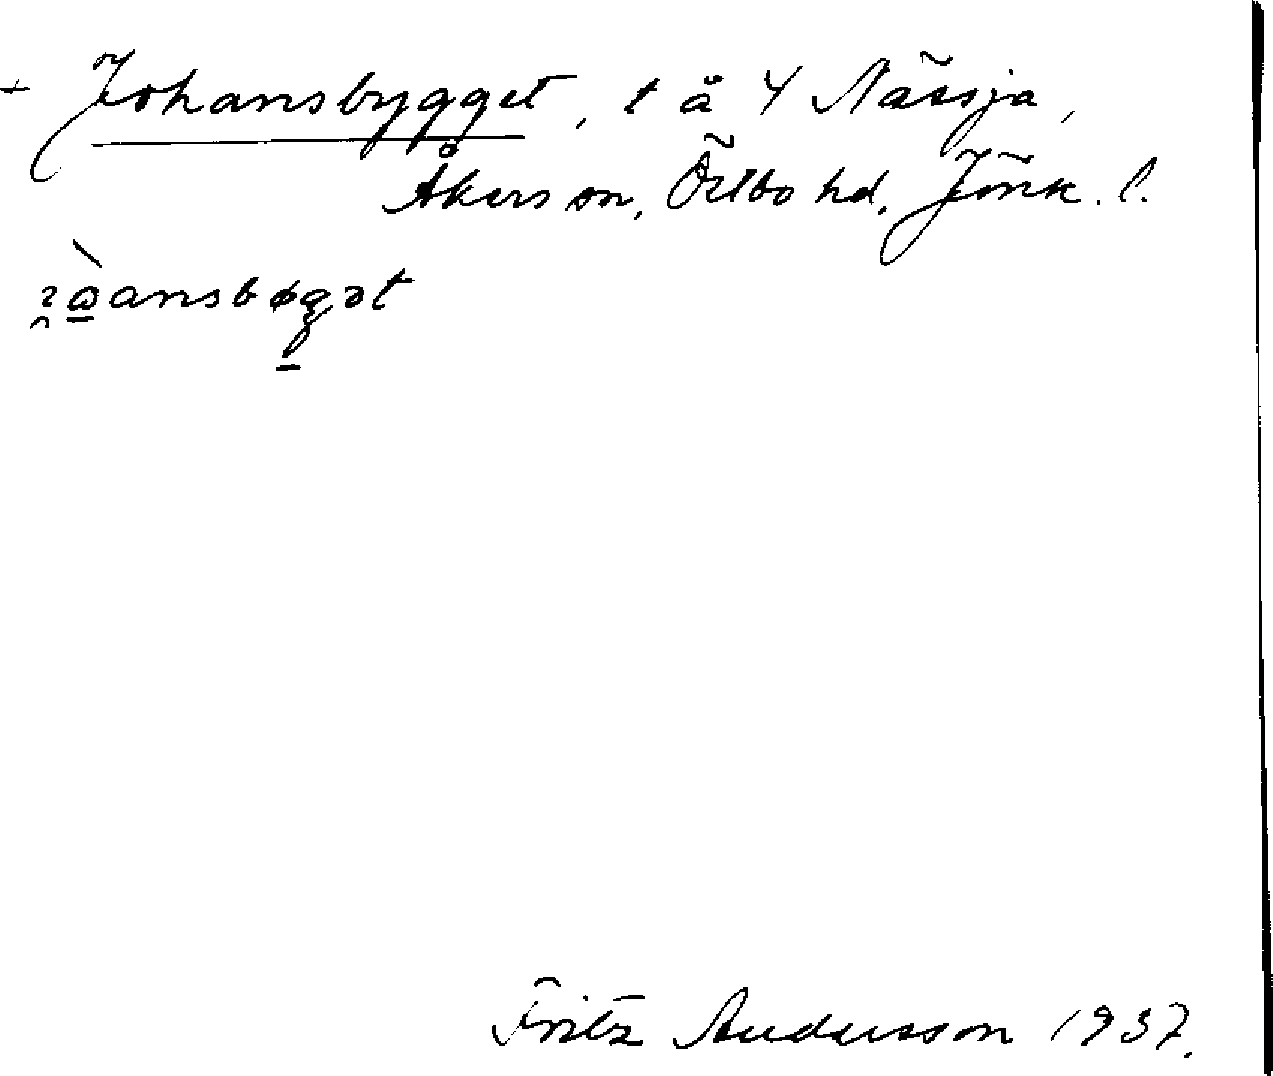 + Johansbygget, t ä Y Nässja,
Åkers sn, Östbo hd, Jönk. l.
Fritz Andersson 1937.